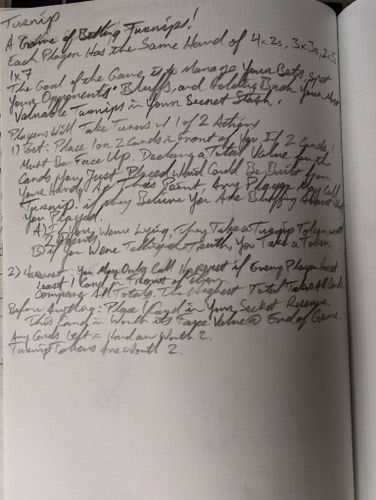 Turnip
A Game of Betting Turnips!
Each Player Has the Same Hand of 4x2s, 3x3s, 2x5s,
1x7
The Goal of the Game is to Manage Your Bets, Spot
Your Opponents' Bluffs, and Holding Back Your Most
Valuable Turnips in Your Secret Stash.
Players Will Take Turns w/ 1 of 2 Actions
1) Bet: Place 1 or 2 Cards in Front of You. If 2 Cards, 1
Must Be Face Up. Declare a Total Value for the
Cards You Just Placed which Could Be Built from
Your Hand. At This Point, Any Player May Call
Turnip if they Believe You Are Bluffing About What
You Played.
A) If You Were Lying, They Take a Turnip Token worth
2 Points
B) If You Were Telling the Truth, You Take a Token.
2) Harvest: You May Only Call Harvest if Every Player has at
Least 1 Card in Front of Them.
Compare All Totals. The Highest Total Takes All Cards.
Before Anything: Place 1 Card in Your Secret Reserve.
This Card is Worth its Face Value @ End of Game.
Any Cards Left in Hand are Worth 2.
Turnip Tokens Are Worth 2.